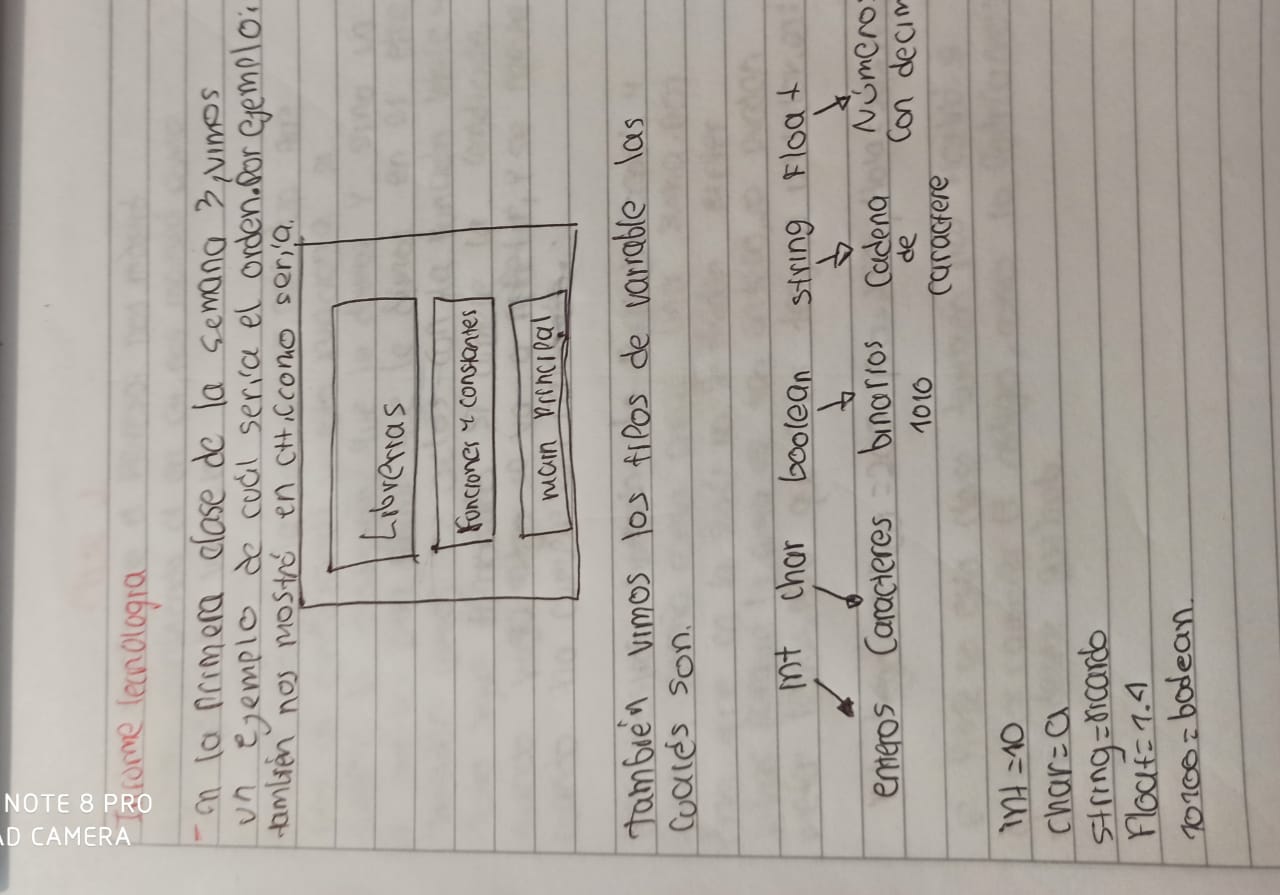 Informe tecnologia
- en la primera clase de la semana 3, vimos
un ejemplo de cuál sería el orden. Por ejemplo:
también nos mostró en c++, como sería.
Librerias
Funciones y constantes
main principal
También vimos los tipos de variable las
cuales son.
int char boolean string float
enteros Caracteres binarios Cadena Números
1010 de Con decim
caractere
int = 10
char = a
string = ricardo
Float = 1.4
10100 = boolean.
NOTE 8 PRO
AD CAMERA